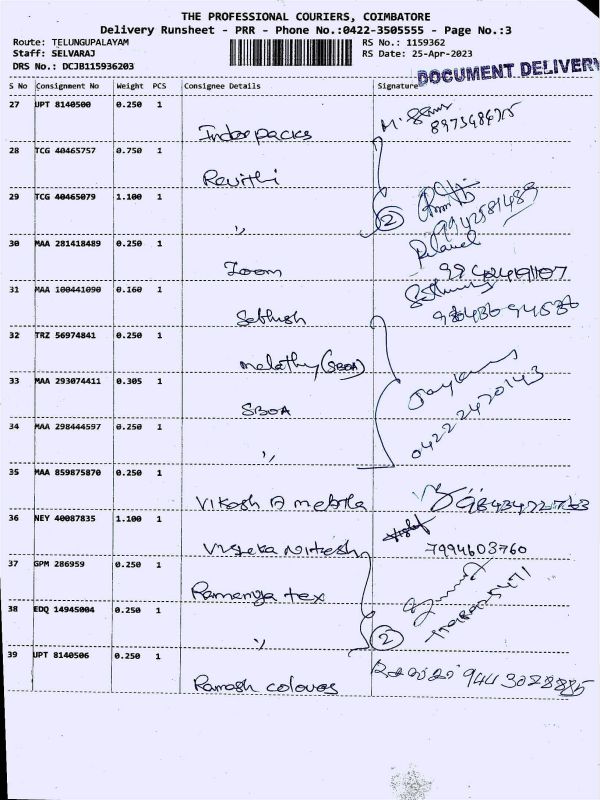 THE PROFESSIONAL COURIERS, COIMBATORE
Delivery Runsheet - PRR - Phone No.:0422-3505555 - Page No.:3
Route: TELUNGUPALAYAM RS No.: 1159362
Staff: SELVARAJ RS Date: 25-Apr-2023
DRS No.: DCJB115936203
DOCUMENT DELIVERY
S No Consignment No Weight PCS Consignee Details Signature
27 UPT 8140500 0.250 1
28 TCG 40465757 0.750 1
Revithi
29 TCG 40465079 1.100 1
" 2
30 MAA 281418489 0.250 1
Zoom
31 MAA 100441090 0.160 1
Sathish
32 TRZ 56974841 0.250 1
Malathy (SBOA)
33 MAA 293074411 0.305 1
SBOA
04222420143
34 MAA 298444597 0.250 1
"
35 MAA 859875870 0.250 1
Vikash A Mehtla
36 NEY 40087835 1.100 1
Nitesh 7994603760
37 GPM 286959 0.250 1
Ramanya tex
38 EDQ 14945004 0.250 1
" 2
39 UPT 8140506 0.250 1
Ramash colours 944 3028885